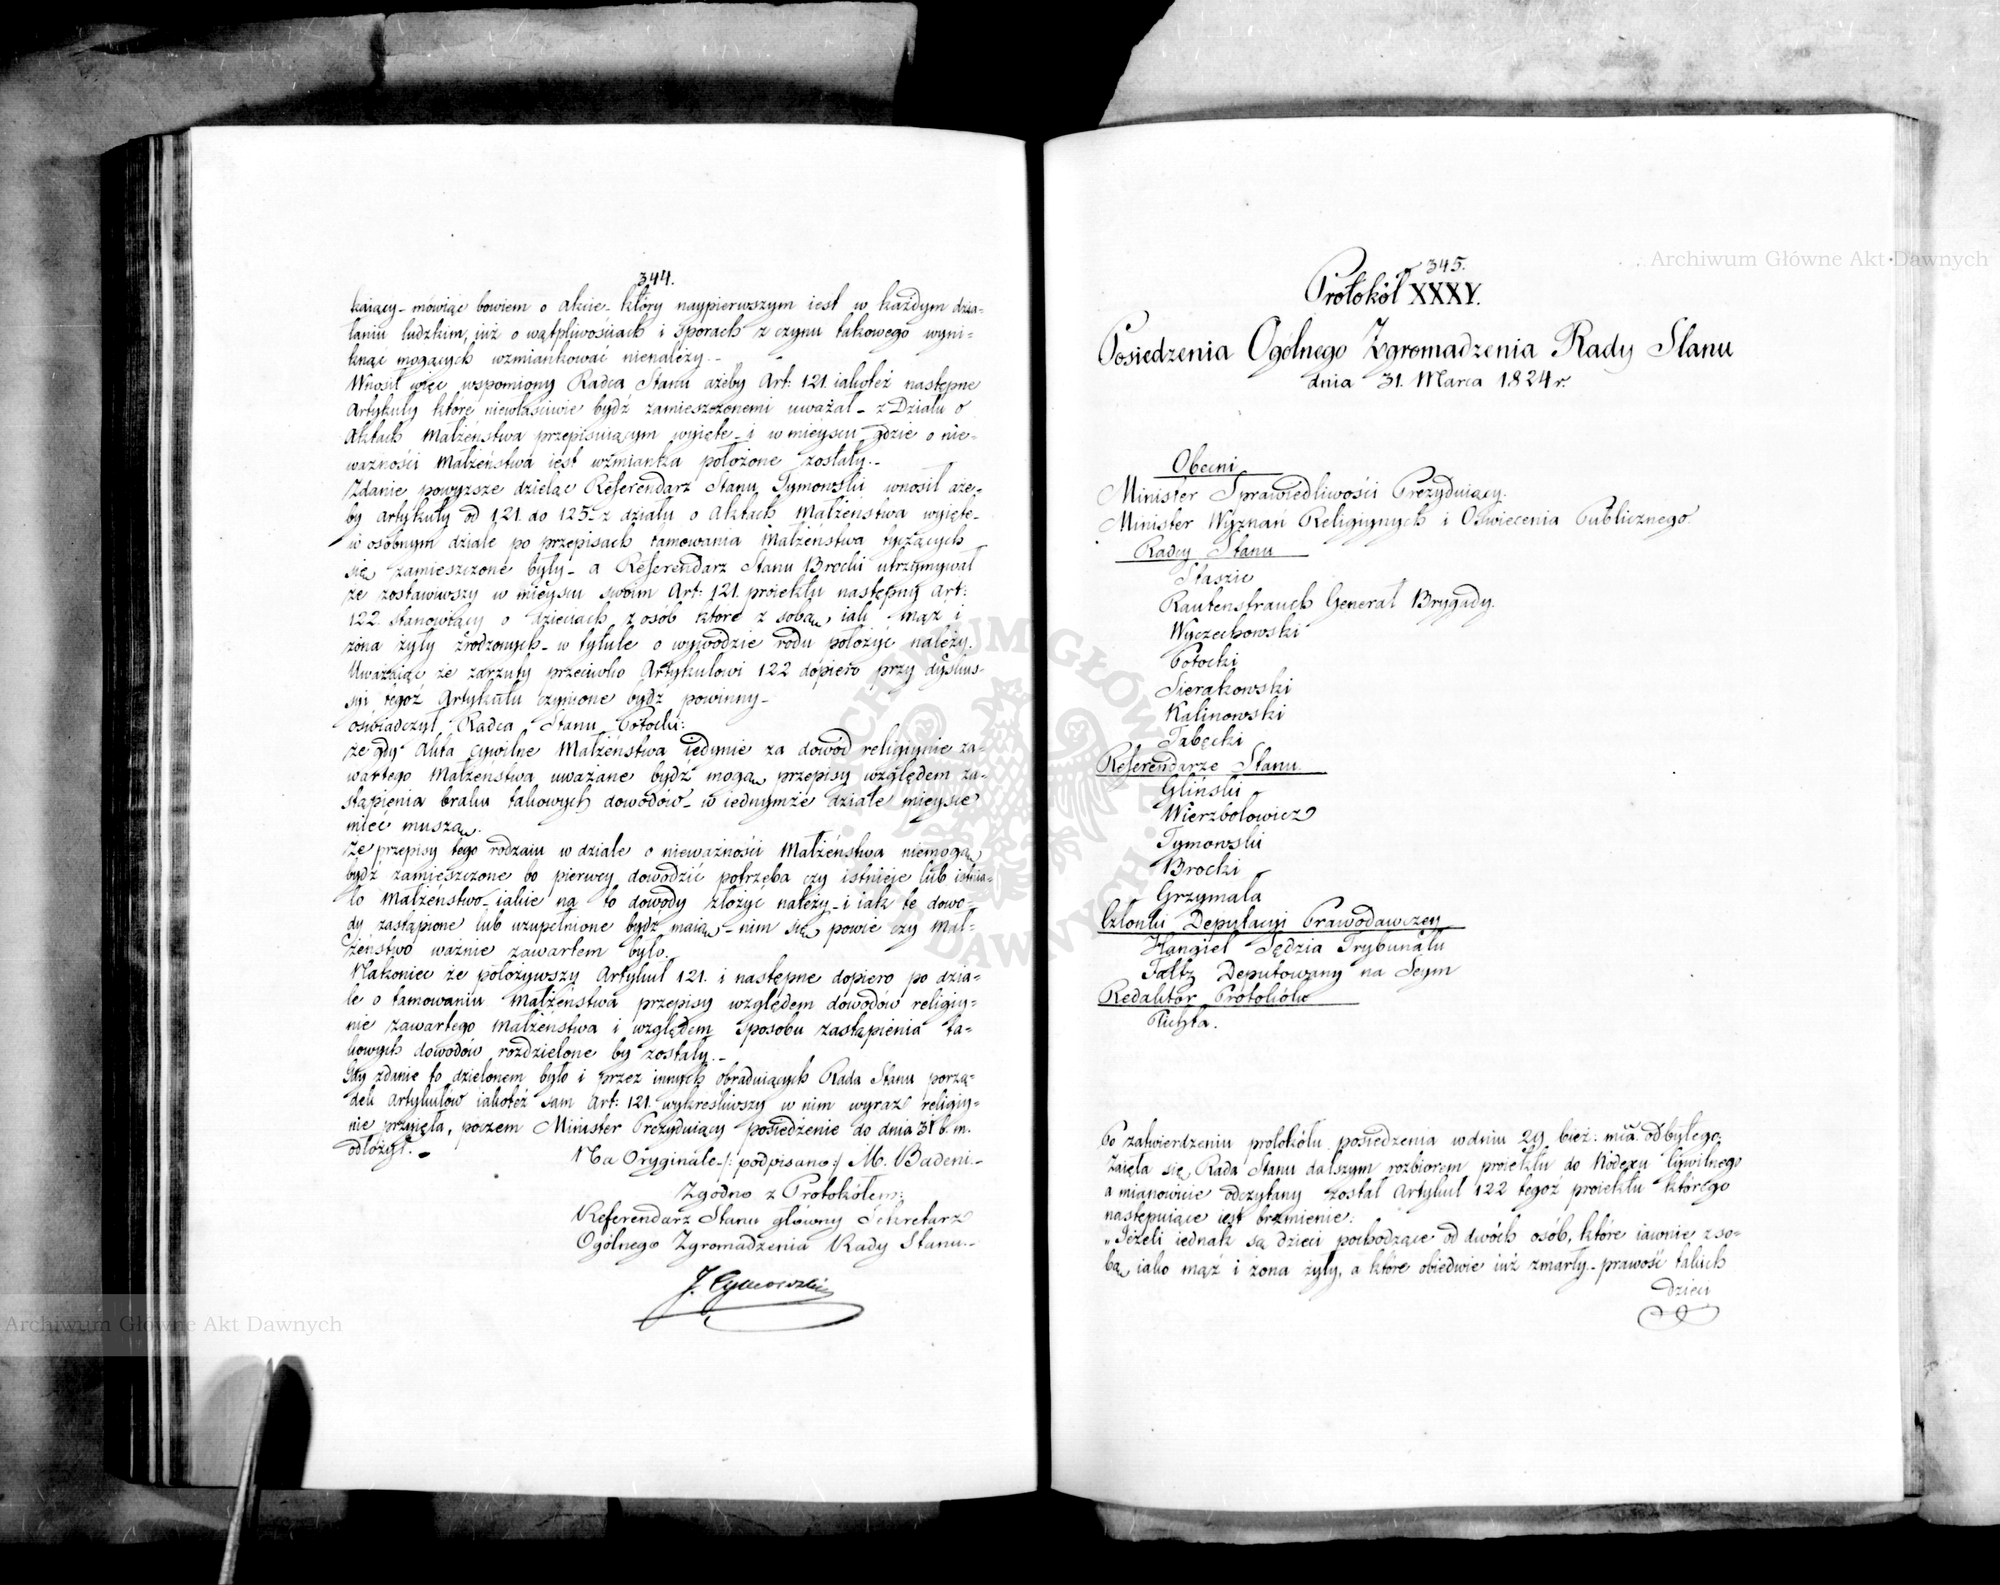 344.
kaiący - mówiąc bowiem o akcie - który naypierwszym iest w każdym dzia-
łaniu ludzkim, iuż o wątpliwościach i sporach z czynu takowego wyni-
knąć mogących wzmiankować nienależy. -
Wnosił więc wspomiony Radca Stanu ażeby Art: 121 iakoteż następne
Artykuły które niewłaściwie bydź zamieszczonemi uważał - z Działu o
Aktach Małżeństwa przepisuiącym wyięte - i w mieyscu gdzie o nie-
ważności Małżeństwa iest wzmianka położone zostały. -
Zdanie powyższe dzieląc Referendarz Stanu Tymowski wnosił aże-
by artykuły od 121 do 125 - z działu o Aktach Małżeństwa wyięte -
w osobnym dziale po przepisach tamowania Małżeństwa tyczących
się zamieszczone były - a Referendarz Stanu Brocki utrzymywał
że zostawiwszy w mieyscu swoim Art: 121. proiektu następny Art:
122. stanowiący o dzieciach z osób które z sobą iak mąż i
żona żyły zrodzonych - w tytule o wywodzie rodu położyć należy.
Uważaiąc że zarzuty przeciwko Artykułowi 122 dopiero przy dyskus-
sii tegoż Artykułu czynione bydź powinny -
oświadczył Radca Stanu Potocki:
że gdy Akta Cywilne Małżeństwa iedynie za dowód religiynie za-
wartego Małżeństwa uważane bydź mogą przepisy względem za-
stąpienia braku takowych dowodów - w iednymże dziale mieysce
mieć muszą.
Że przepisy tego rodzaiu w dziale o nieważności Małżeństwa niemogą
bydź zamieszczone bo pierwey dowodzić potrzeba czy istnieje lub istnia-
ło Małżeństwo - iakie na to dowody złożyć należy - i iak te dowo-
dy zastąpione lub uzupełnione bydź maią - nim się powie czy Mał-
żeństwo ważnie zawartem było.
Nakoniec że położywszy Artykuł 121. i następne dopiero po dzia-
le o tamowaniu Małżeństwa przepisy względem dowodów religiy-
nie zawartego Małżeństwa i względem sposobu zastąpienia ta-
kowych dowodów rozdzielone by zostały. -
Gdy zdanie to dzielonem było i przez innych obraduiących Rada Stanu porzą-
dek Artykułów iakoteż sam Art: 121. wykreśliwszy w nim wyraz religiy-
nie przyięła, poczem Minister Prezyduiący posiedzenie do dnia 31 b. m.
odłożył. -
Na Oryginale /: podpisano :/ M. Badeni -
Zgodno z Protokółem:
Referendarz Stanu główny Sekretarz
Ogólnego Zgromadzenia Rady Stanu. -
J. Tymowski
345.
Protokół XXXV.
Posiedzenia Ogólnego Zgromadzenia Rady Stanu
dnia 31. Marca 1824 r.
Obecni
Minister Sprawiedliwości Prezyduiący.
Minister Wyznań Religiynych i Oświecenia Publicznego.
Radcy Stanu
Staszic
Rautenstrauch Generał Brygady.
Wyczechowski
Potocki
Sierakowski
Kalinowski
Tabęcki
Referendarze Stanu.
Gliński
Wierzbołowicz
Tymowski
Brocki
Grzymała
Członki Deputacyi Prawodawczey
Hangiel Sędzia Trybunału
Faltz Deputowany na Seym
Redaktor Protokółu
Puchta.
Po zatwierdzeniu protokółu posiedzenia w dniu 29 bież: mca. odbytego,
Zaięła się Rada Stanu dalszym rozbiorem proiektu do Kodexu Cywilnego
a mianowicie odczytany został Artykuł 122 tegoż proiektu którego
następuiące iest brzmienie:
"Jeżeli iednak są dzieci pochodzące od dwóch osób, które iawnie z so-
bą iako mąż i żona żyły, a które obiedwie iuż zmarły - prawość takich
dzieci
Archiwum Główne Akt Dawnych
Archiwum Główne Akt Dawnych
ARCHIWUM GŁÓWNE AKT DAWNYCH